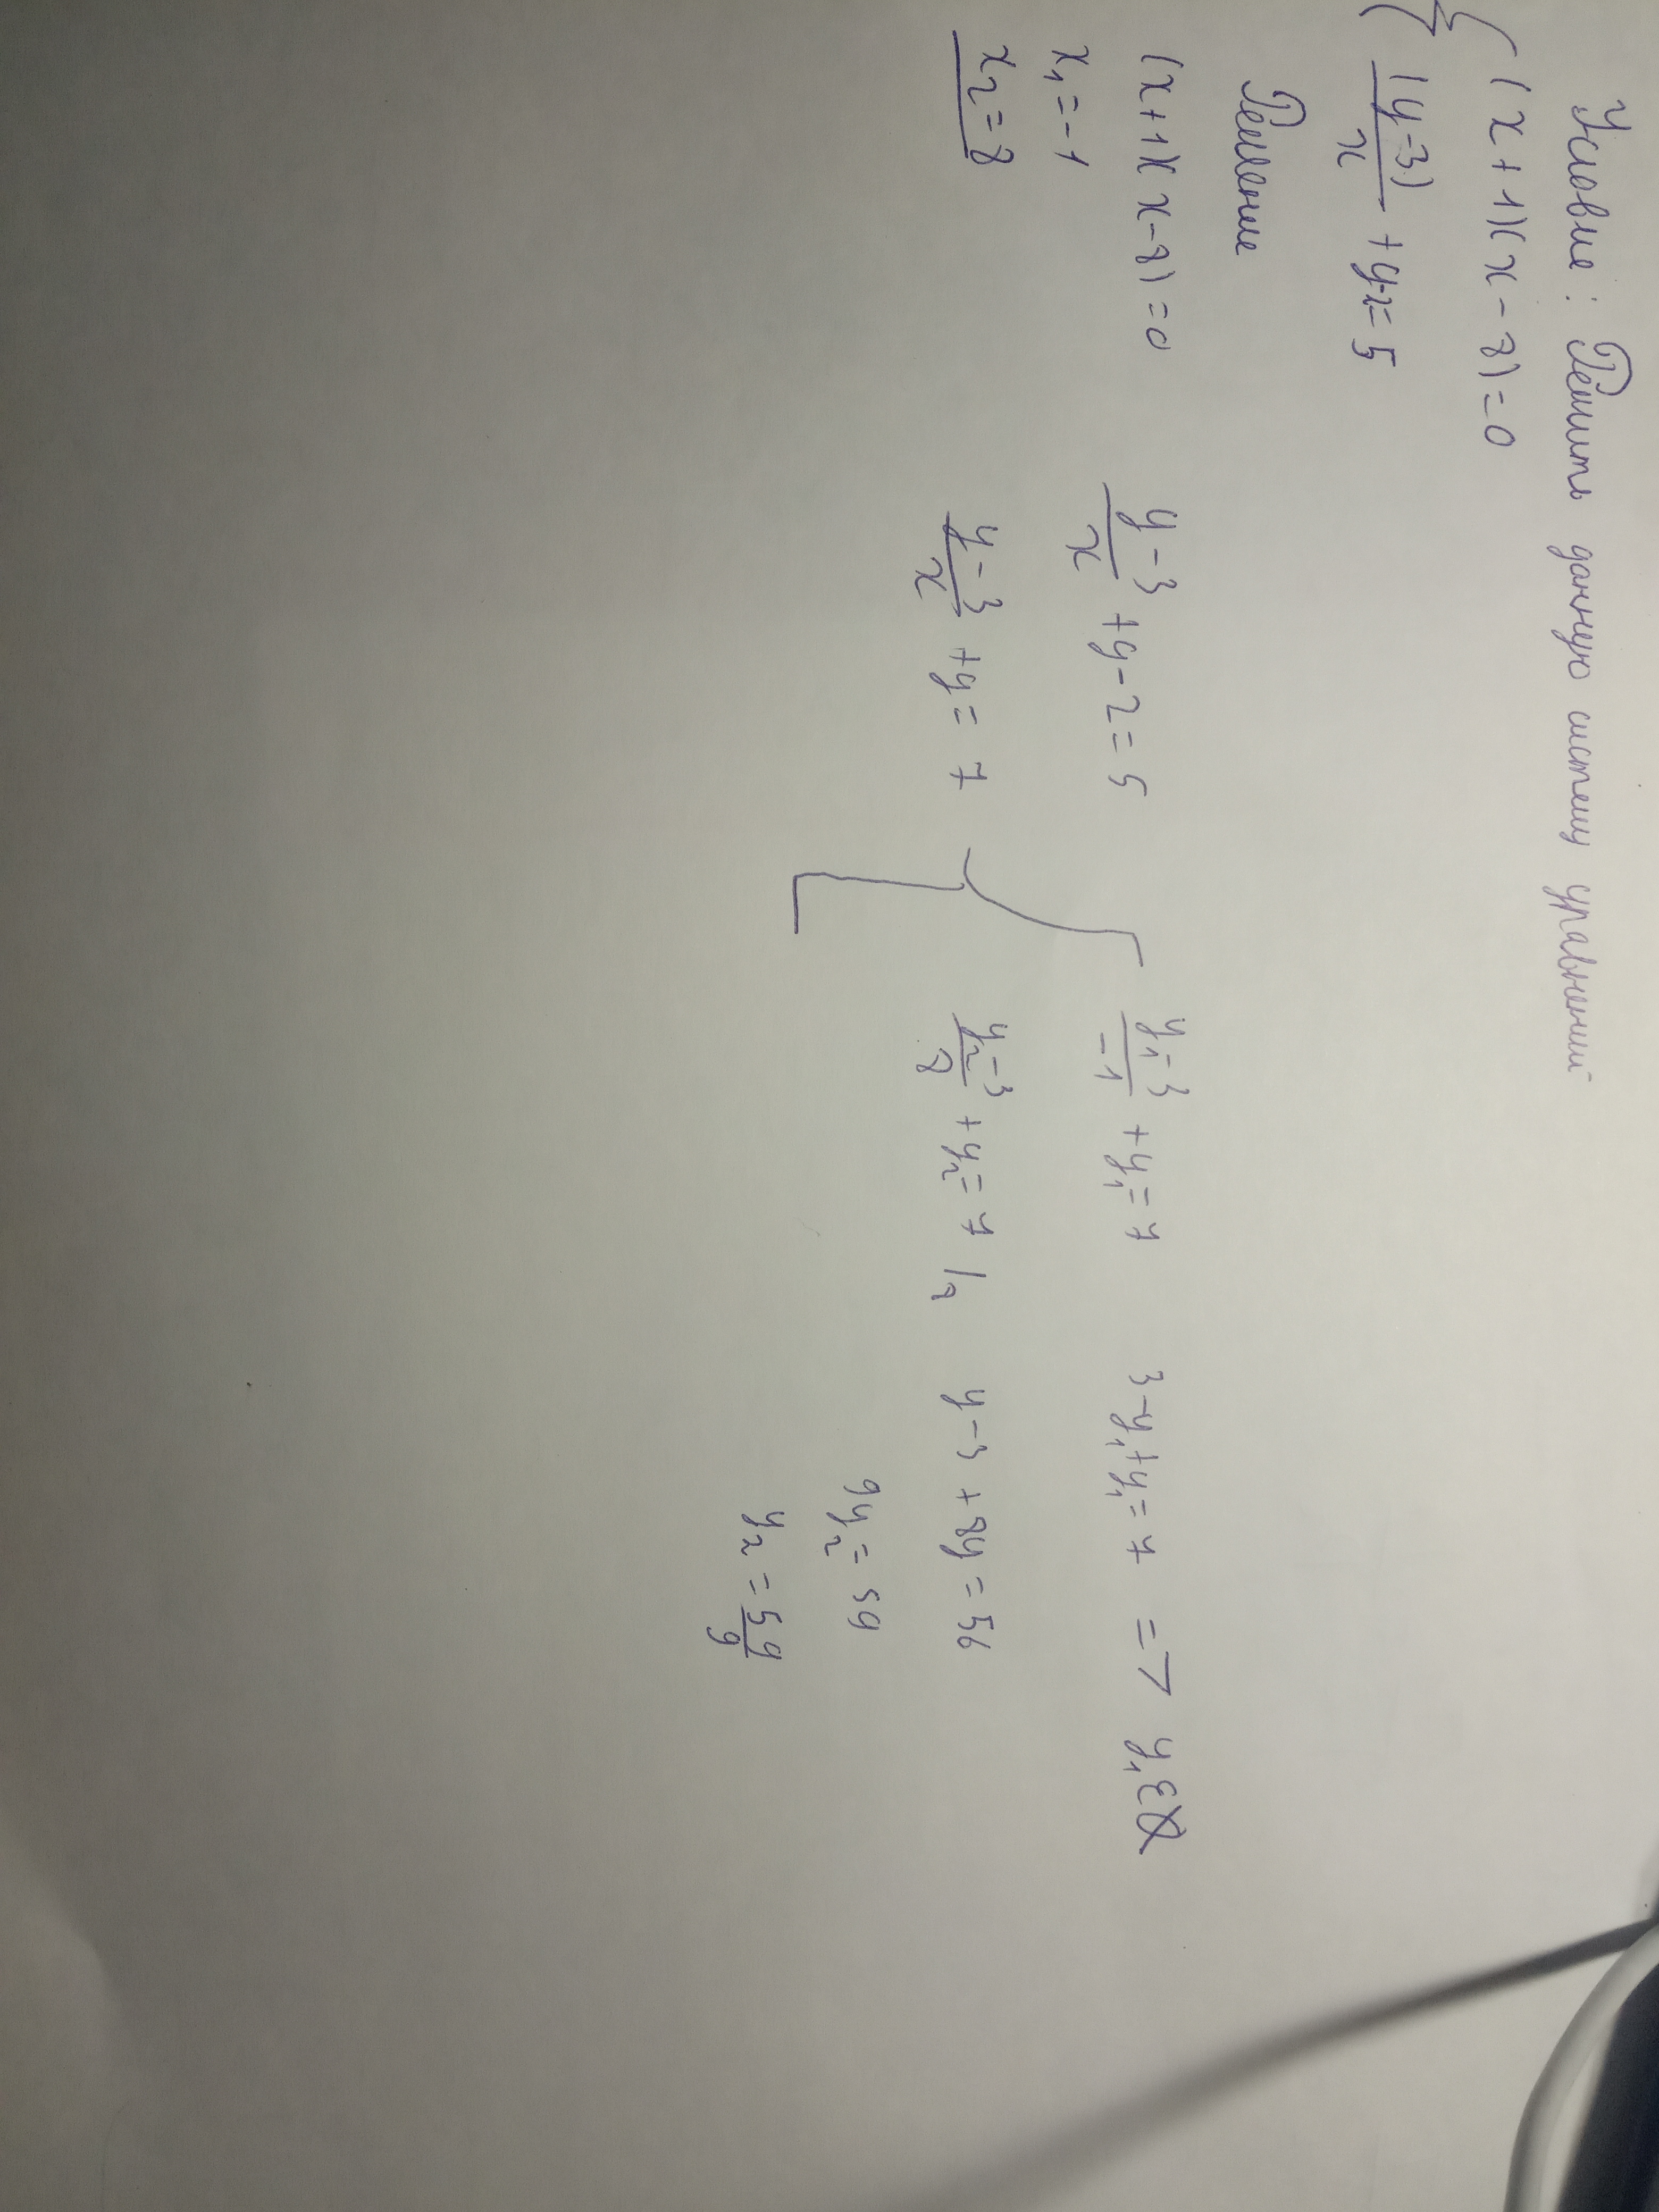 Условие: Решить данную систему уравнений
{ (x+1)(x-8)=0
(y-3)/x + y-2=5
Решение
(x+1)(x-8)=0
x₁=-1
x₂=8
y-3/x +y-2=5
y-3/x +y=7
y₁-3/-1 +y₁=7 3-y₁+y₁=7 => y₁∈∅
y₂-3/8 +y₂=7 /8 y-3+8y=56
9y₂=59
y₂=59/9